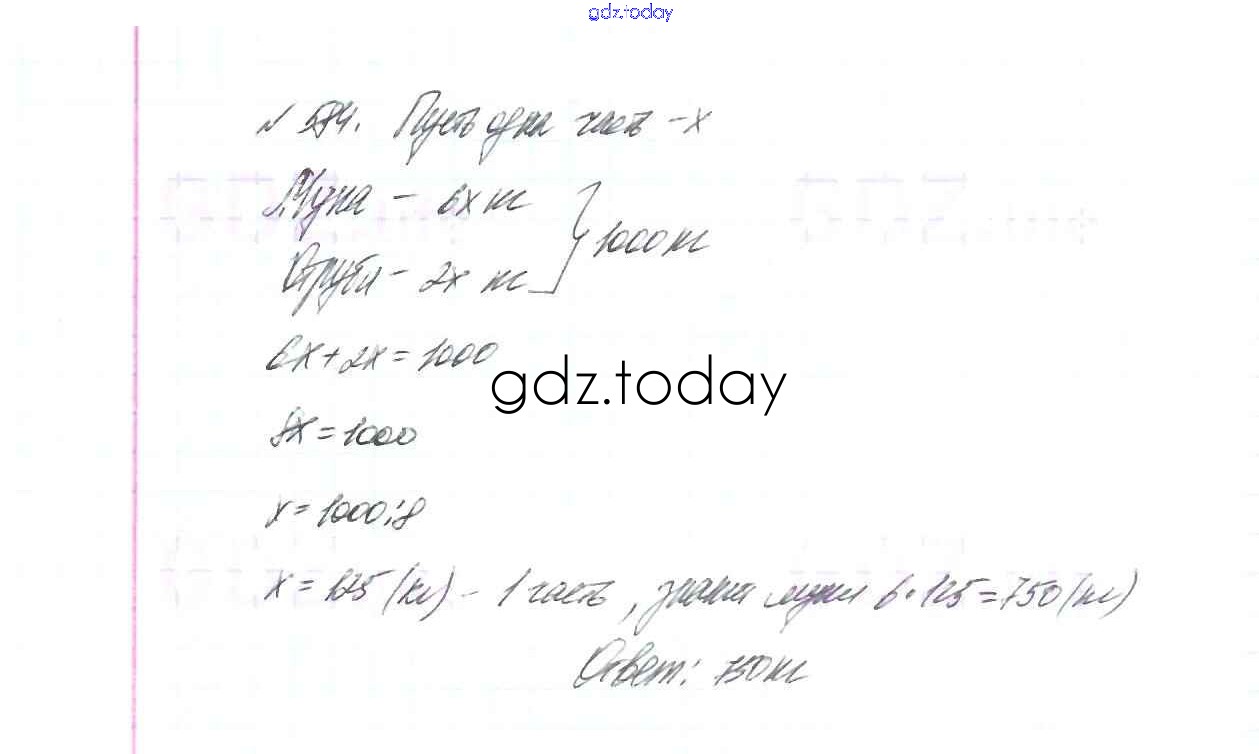 gdz.today
№ 584. Пусть одна часть - x
Мука - 6x кг
} 1000 кг
Отруби - 2x кг
6x + 2x = 1000
gdz.today
8x = 1000
x = 1000 : 8
x = 125 (кг) - 1 часть, значит муки 6 · 125 = 750 (кг)
Ответ: 750 кг